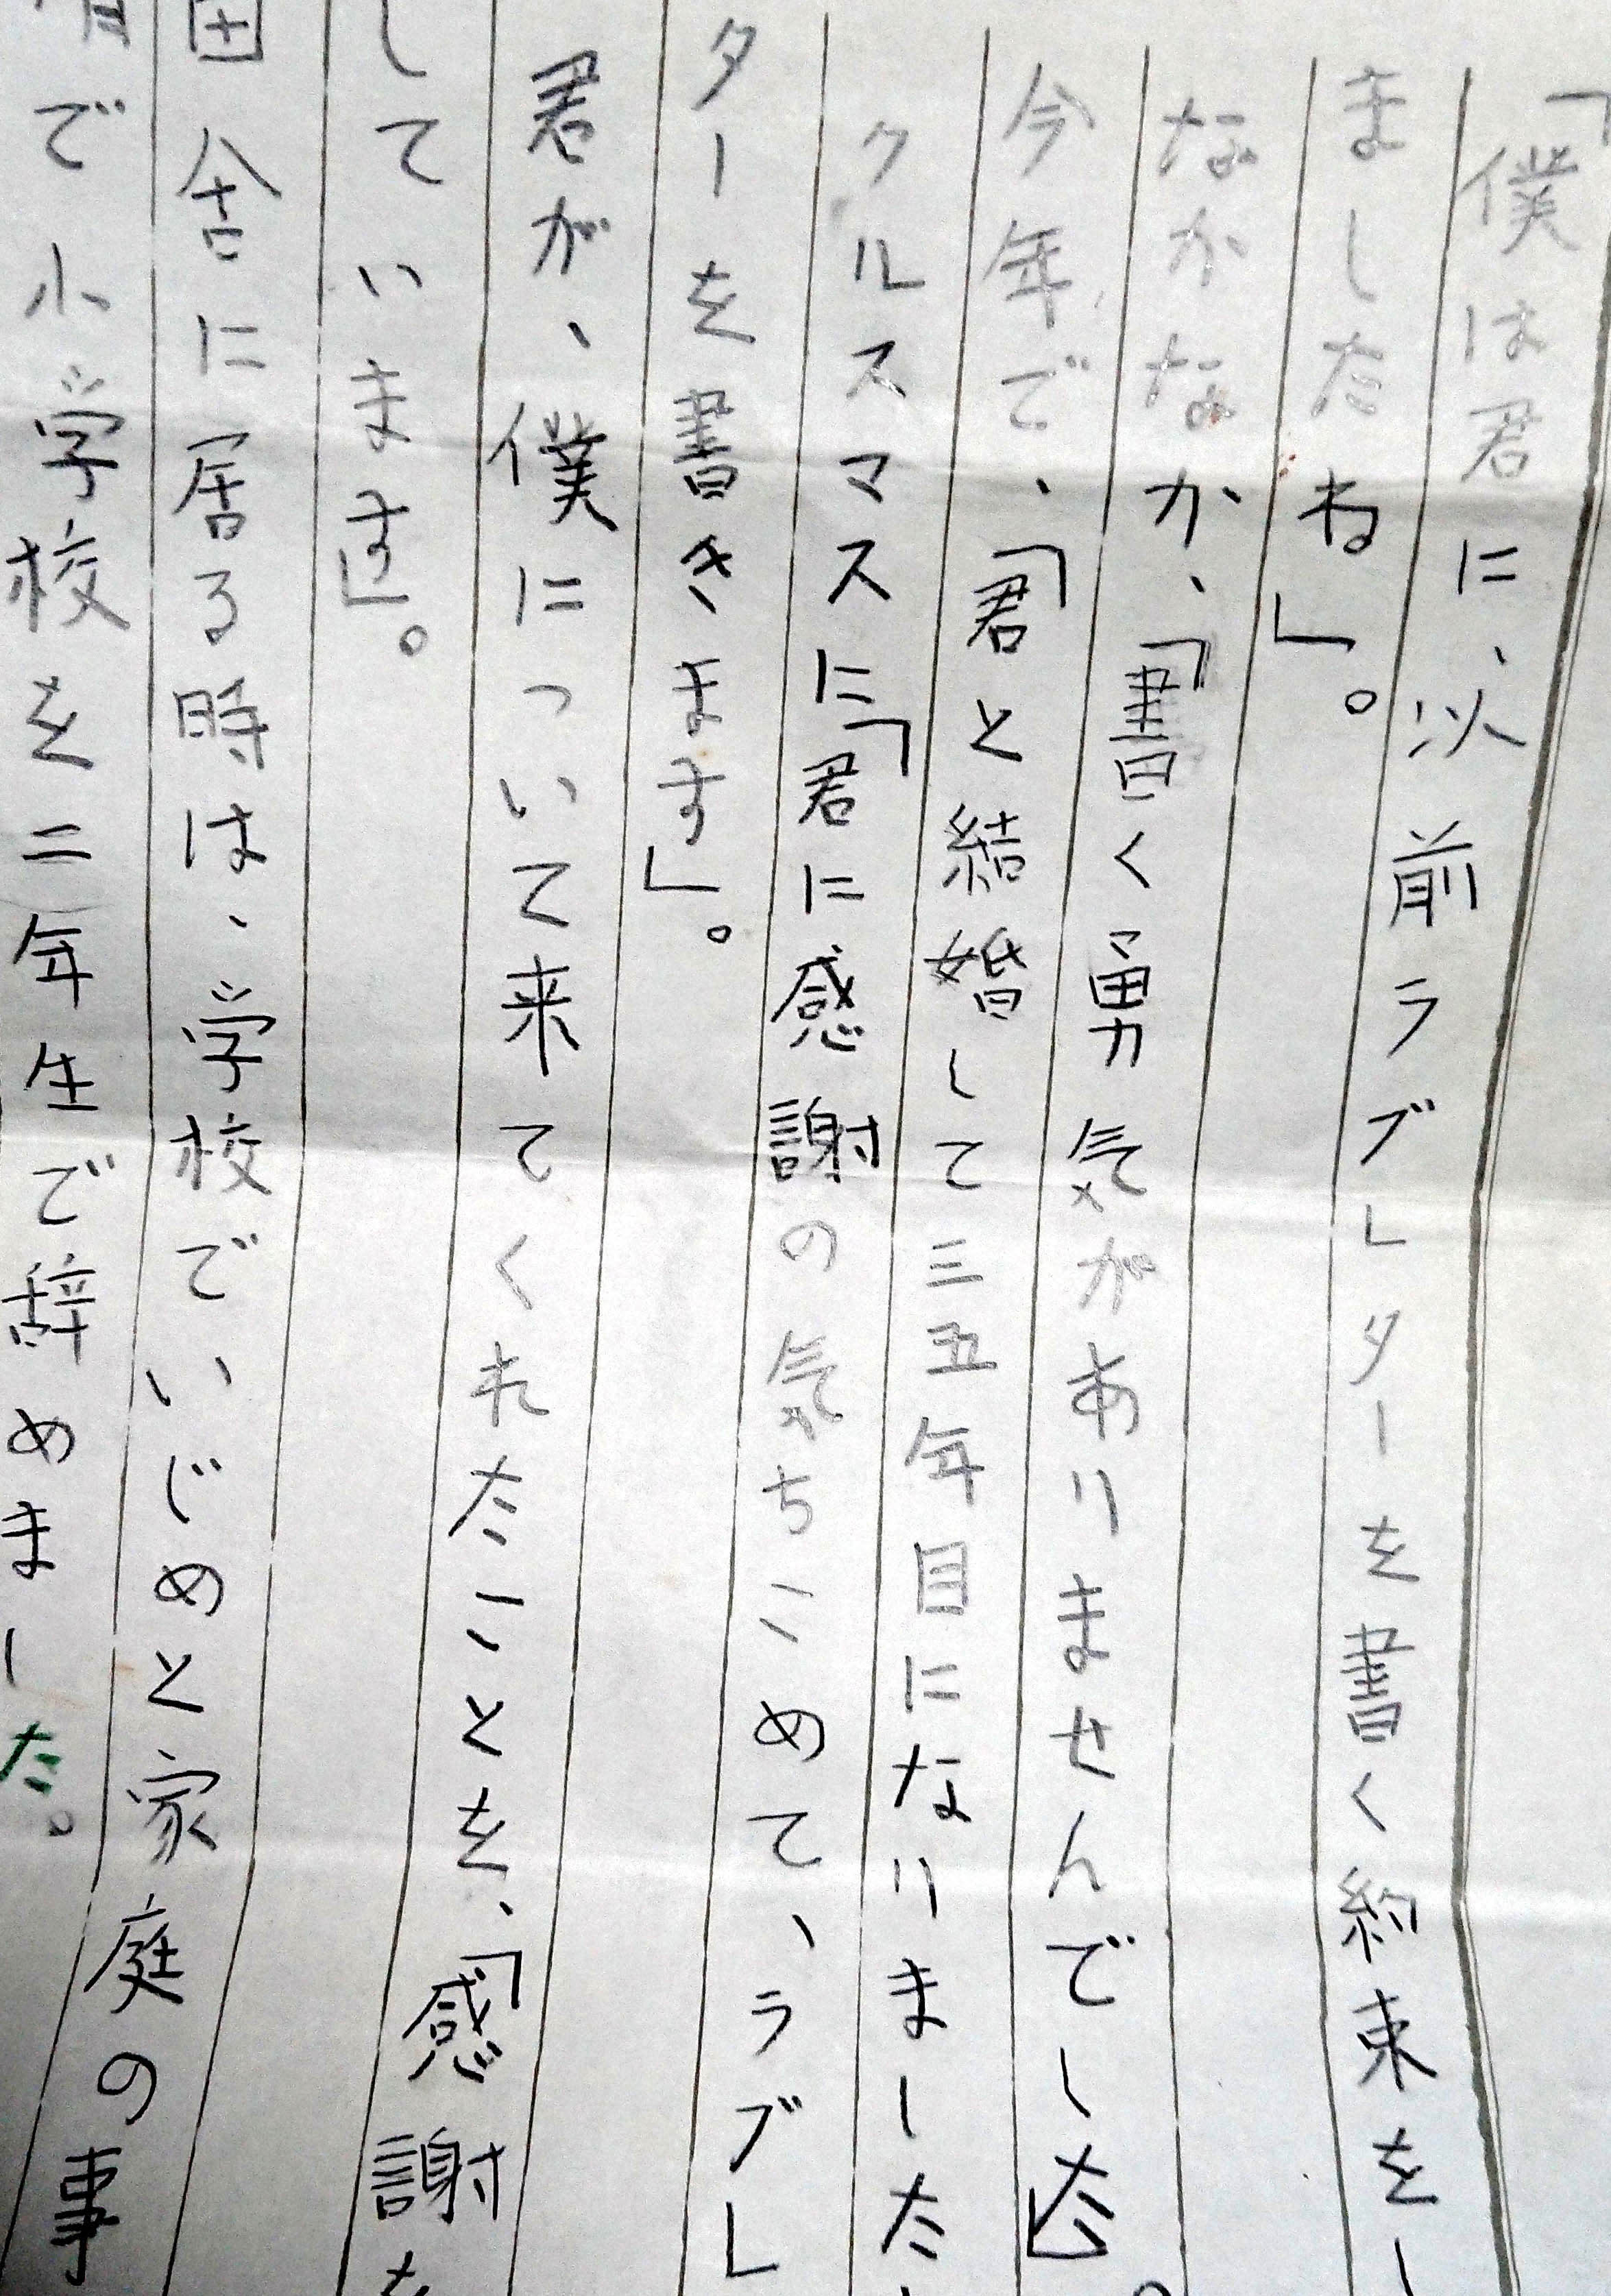 「僕は君に、以前ラブレターを書く約束をし
ましたね」。
なかなかなか、「書く勇気がありませんでした」。
今年で、「君と結婚して三五年目になりました
クルスマスに「君に感謝の気ちこめて、ラブレ
ターを書きます」。
君が、僕について来てくれたことを、「感謝を
しています」。
田舎に居る時は、学校でいじめと家庭の事
情で小学校を二年生で辞めました。